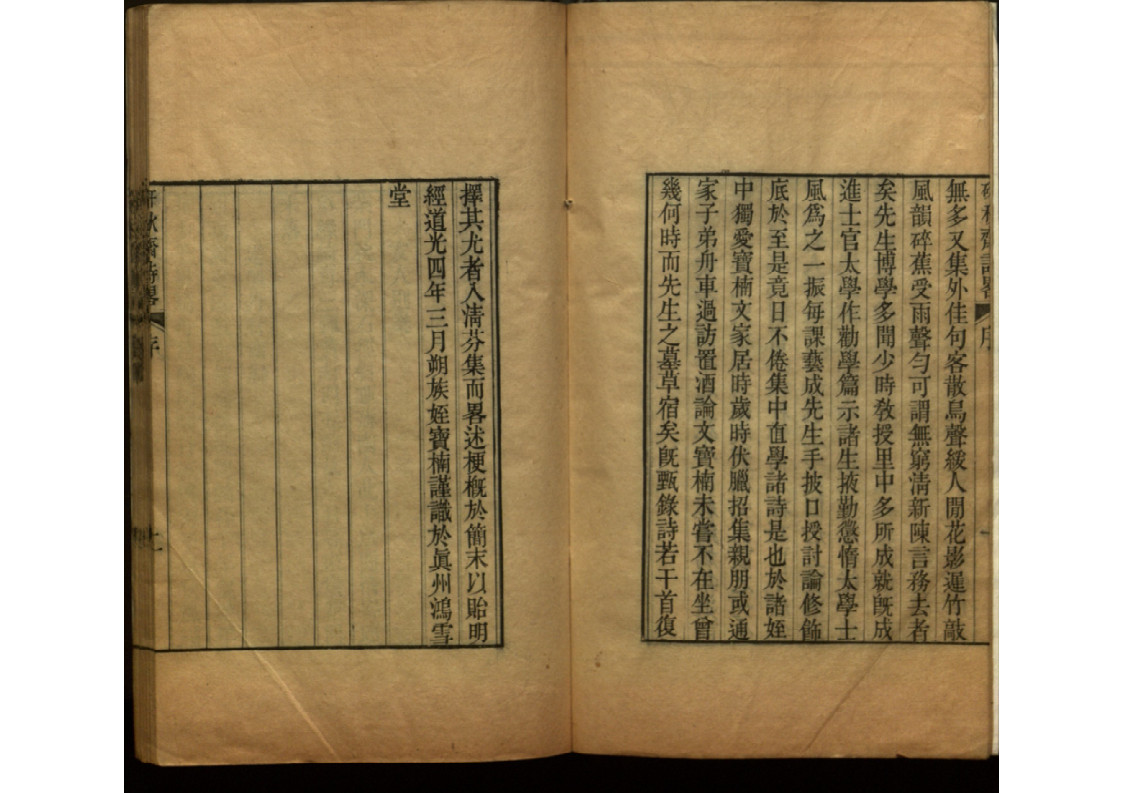 無多又集外佳句客散鳥聲緩人閒花影遲竹敲
風韻碎蕉受雨聲勻可謂無窮淸新陳言務去者
矣先生博學多聞少時敎授里中多所成就旣成
進士官太學作勸學篇示諸生掖勤懲惰太學士
風爲之一振每課藝成先生手披口授討論修飾
底於至是竟日不倦集中直學諸詩是也於諸姪
中獨愛寶楠文家居時歲時伏臘招集親朋或通
家子弟舟車過訪置酒論文寶楠未嘗不在坐曾
幾何時而先生之墓草宿矣旣甄錄詩若干首復
擇其尤者入淸芬集而畧述梗槪於簡末以貽明
經道光四年三月朔族姪寶楠謹識於眞州鴻雪
堂
秋齋詩畧 序